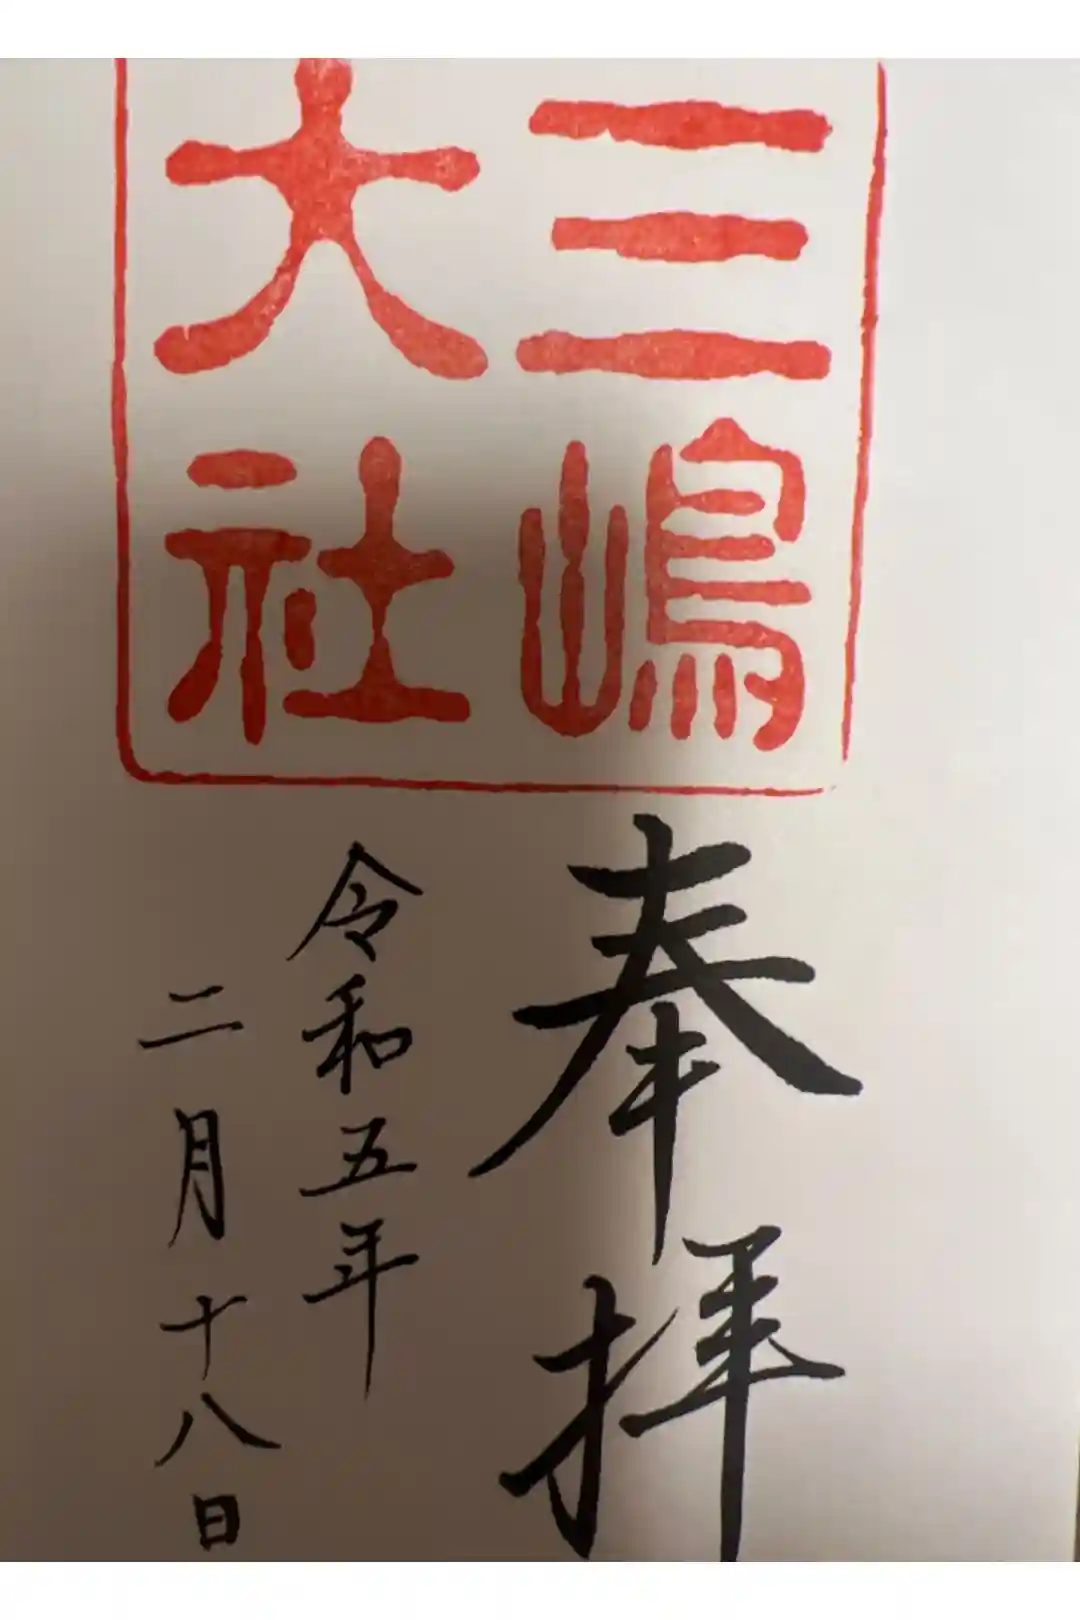 三嶋
大社
奉拝
令和五年
二月十八日